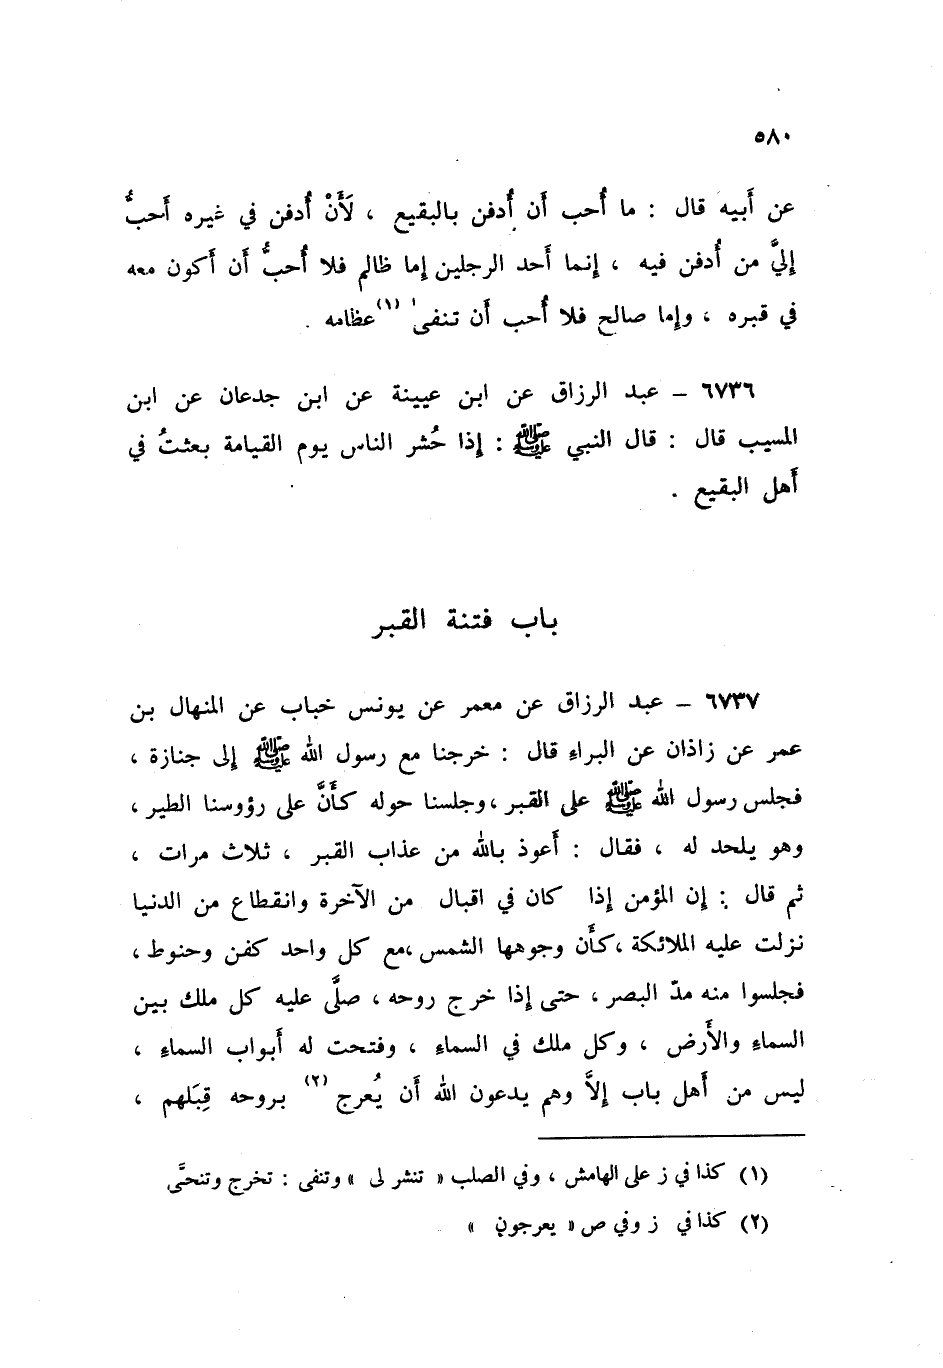 ٥٨٠
عن أَبيه قال : ما أُحب أَن أُدفن بالبقيع ، لَأَنْ أُدفن في غيره أَحبُّ
إِليَّ من أُدفن فيه ، إِنما أَحد الرجلين إِما ظالم فلا أُحبُّ أَن أَكون معه
في قبره ، وإِما صالح فلا أُحب أَن تنفى (١) عظامه .
٦٧٣٦ – عبد الرزاق عن ابن عيينة عن ابن جدعان عن ابن
المسيب قال : قال النبي ﷺ : إِذا حُشر الناس يوم القيامة بعثتُ في
أَهل البقيع .
باب فتنة القبر
٦٧٣٧ – عبد الرزاق عن معمر عن يونس خباب عن المنهال بن
عمر عن زاذان عن البراءِ قال : خرجنا مع رسول الله ﷺ إِلى جنازة ،
فجلس رسول الله ﷺ على القبر ، وجلسنا حوله كأَنَّ على رؤوسنا الطير ،
وهو يلحد له ، فقال : أَعوذ بالله من عذاب القبر ، ثلاث مرات ،
ثم قال : إِن المؤمن إِذا كان في اقبال من الآخرة وانقطاع من الدنيا
نزلت عليه الملائكة ، كأَن وجوهها الشمس ، مع كل واحد كفن وحنوط ،
فجلسوا منه مدّ البصر ، حتى إِذا خرج روحه ، صلَّى عليه كل ملك بين
السماءِ والأَرض ، وكل ملك في السماءِ ، وفتحت له أَبواب السماءِ ،
ليس من أَهل باب إِلاَّ وهم يدعون الله أَن يُعرج (٢) بروحه قِبَلهم ،
(١) كذا في ز على الهامش ، وفي الصلب « تنشر لى » وتنفى : تخرج وتنحَّى
(٢) كذا في ز وفي ص « يعرجون »